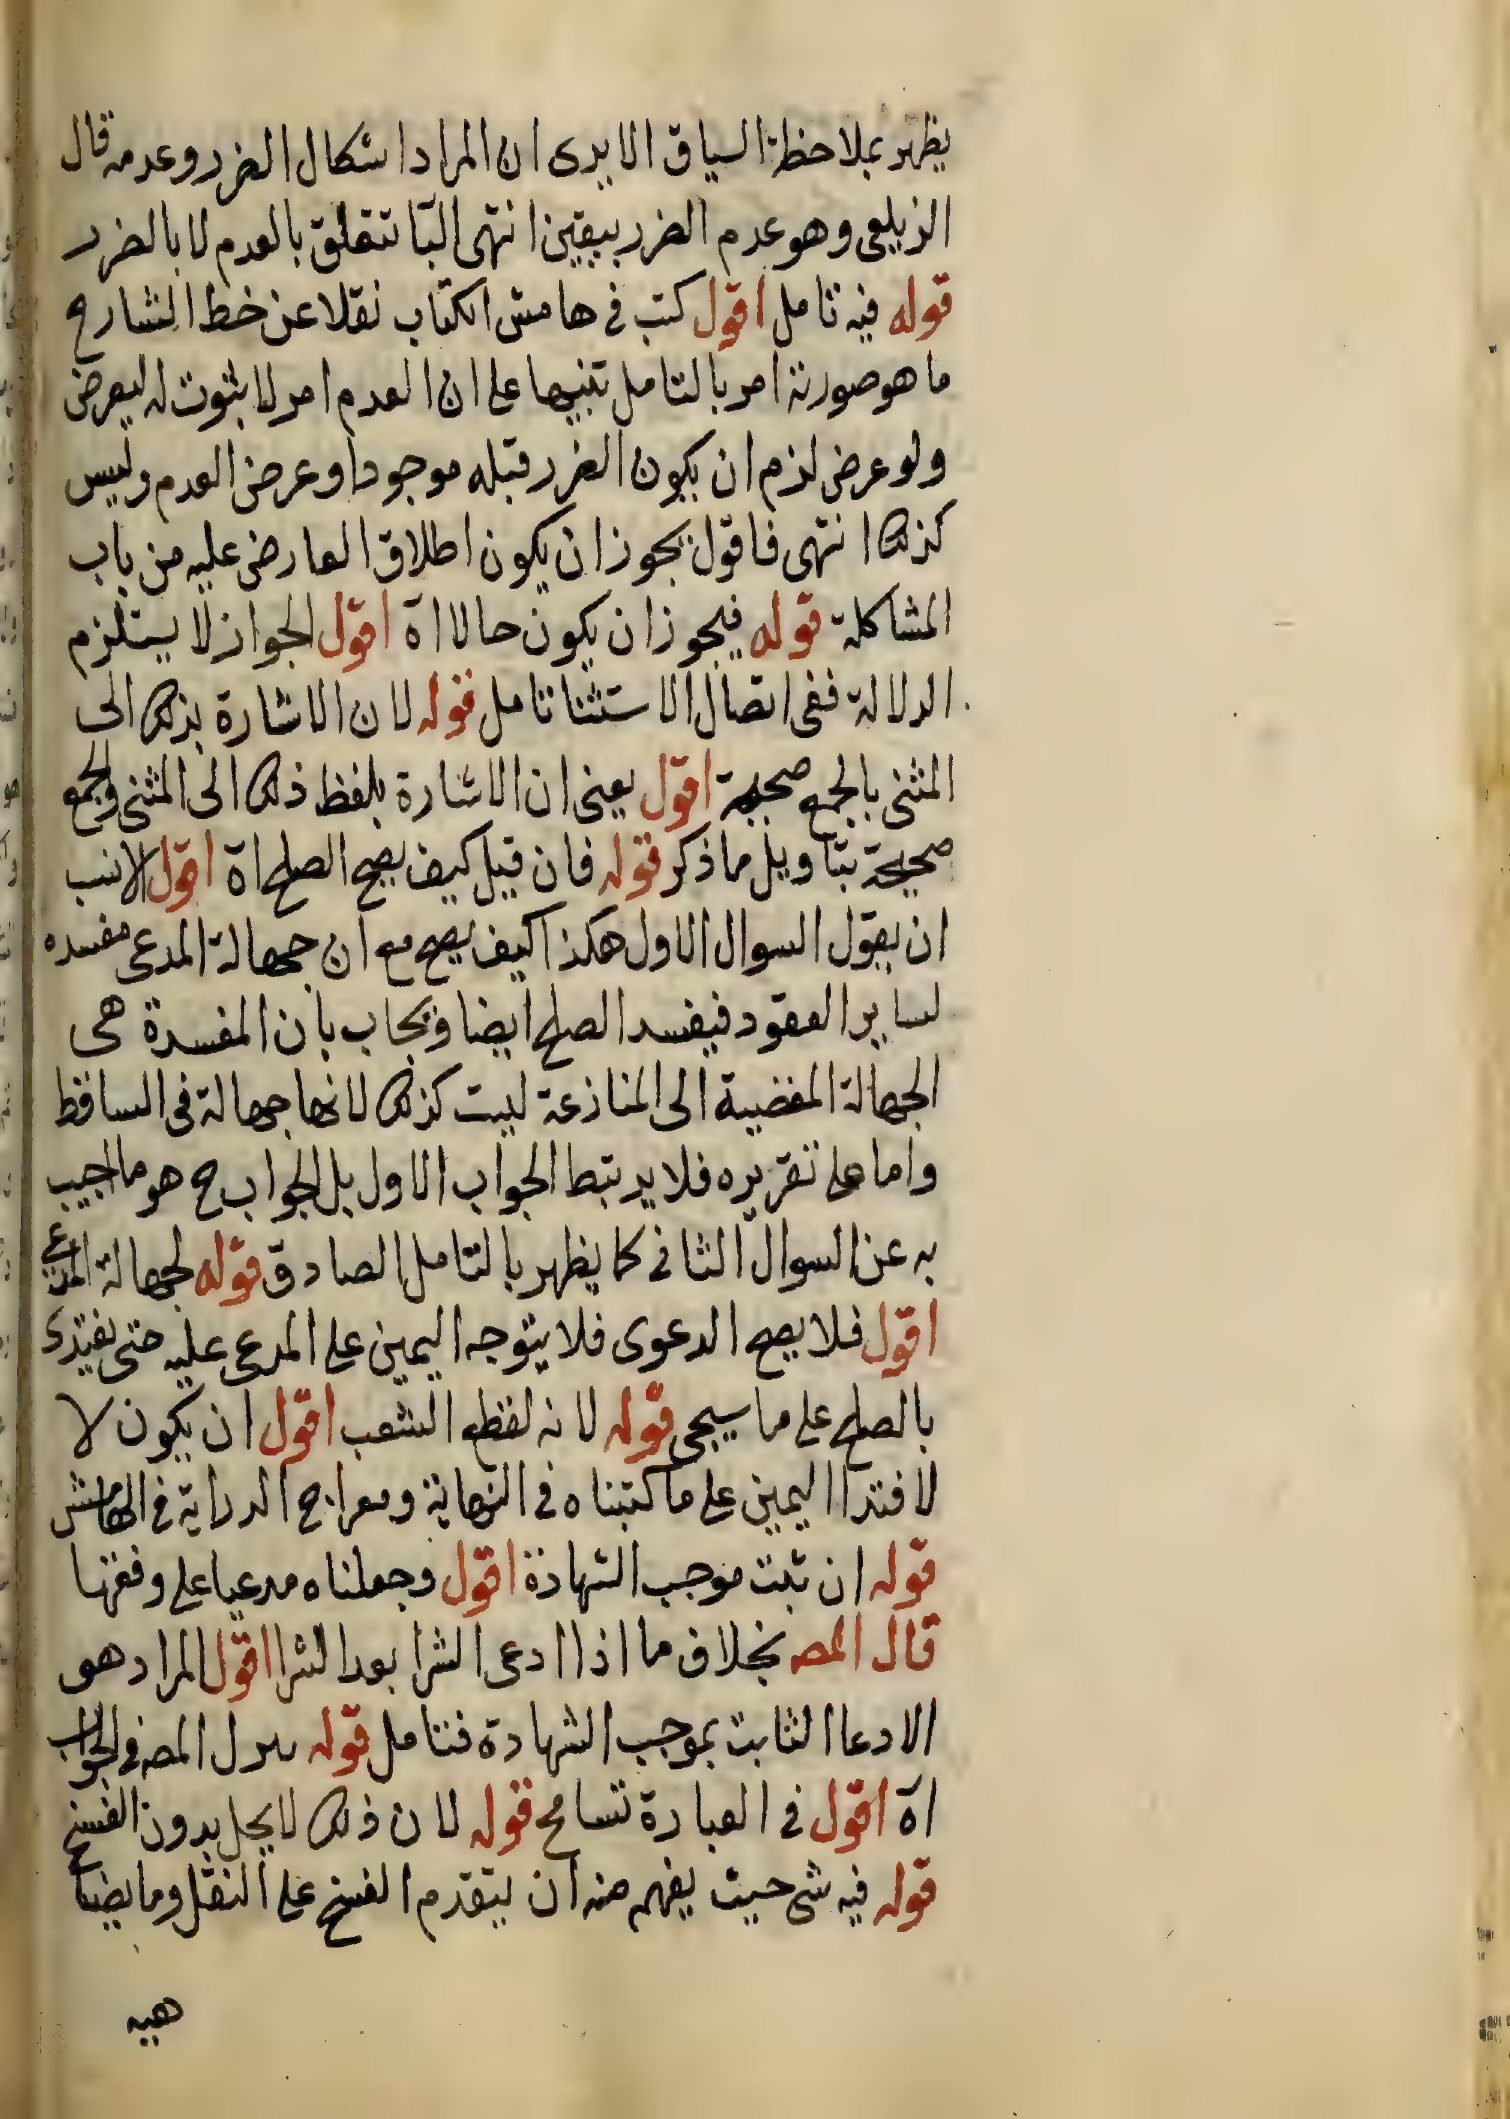 يظهر بملاحظة السياق الا يرى ان المراد اشكال الضرر وعدمه قال
الزيلعى وهو عدم الضرر بيقين انتهى البآ تتعلق بالعدم لا بالضرر
قوله فيه تامل اقول كتب فى هامش الكتاب نقلا عن خط الشارح
ما هو صورته امر بالتامل تنبيها على ان العدم امر لا ثبوت له ليعرض
ولو عرض لزم ان يكون الضرر قبله موجودا وعرض العدم وليس
كذلك انتهى فاقول يجوز ان يكون اطلاق العارض عليه من باب
المشاكلة قوله فيجوز ان يكون حالا اه اقول الجواز لا يستلزم
الدلالة ففى اتصال الاستثنا تامل قوله لان الاشارة بذلك الى
المثنى بالجمع صحيحة اقول يعنى ان الاشارة بلفظ ذلك الى المثنى والجمع
صحيحة بتاويل ما ذكر قوله فان قيل كيف يصح الصلح اه اقول الانسب
ان يقول السوال الاول هكذا كيف يصح مع ان جهالة المدعى مفسده
لساير العقود فيفسد الصلح ايضا ويجاب بان المفسدة هى
الجهالة المفضية الى المنازعة ليست كذلك لانها جهالة فى الساقط
واما على تقريره فلا يرتبط الجواب الاول بل الجواب ح هو ما اجيب
به عن السوال الثانى كما يظهر بالتامل الصادق قوله لجهالة المدعى
اقول فلا يصح الدعوى فلا يتوجه اليمين على المدعى عليه حتى يفتدى
بالصلح على ما سيجى قوله لانه لقطع الشغب اقول ان يكون لا
لافتدا اليمين على ما كتبناه فى النهاية ومعراج الدراية فى الهامش
قوله ان ثبت موجب الشهادة اقول وجعلناه مدعيا على وفقها
قال المصـ بخلاف ما اذا ادعى الشرا بعد الشرا اقول المراد هو
الادعا الثابت بموجب الشهادة فتامل قوله المصـ فى الجواب
اه اقول فى العبارة تسامح قوله لان ذلك لا يحل بدون الفسخ
قوله فيه شى حيث يفهم منه ان يتقدم الفسخ على النقل وما يضا
هيه